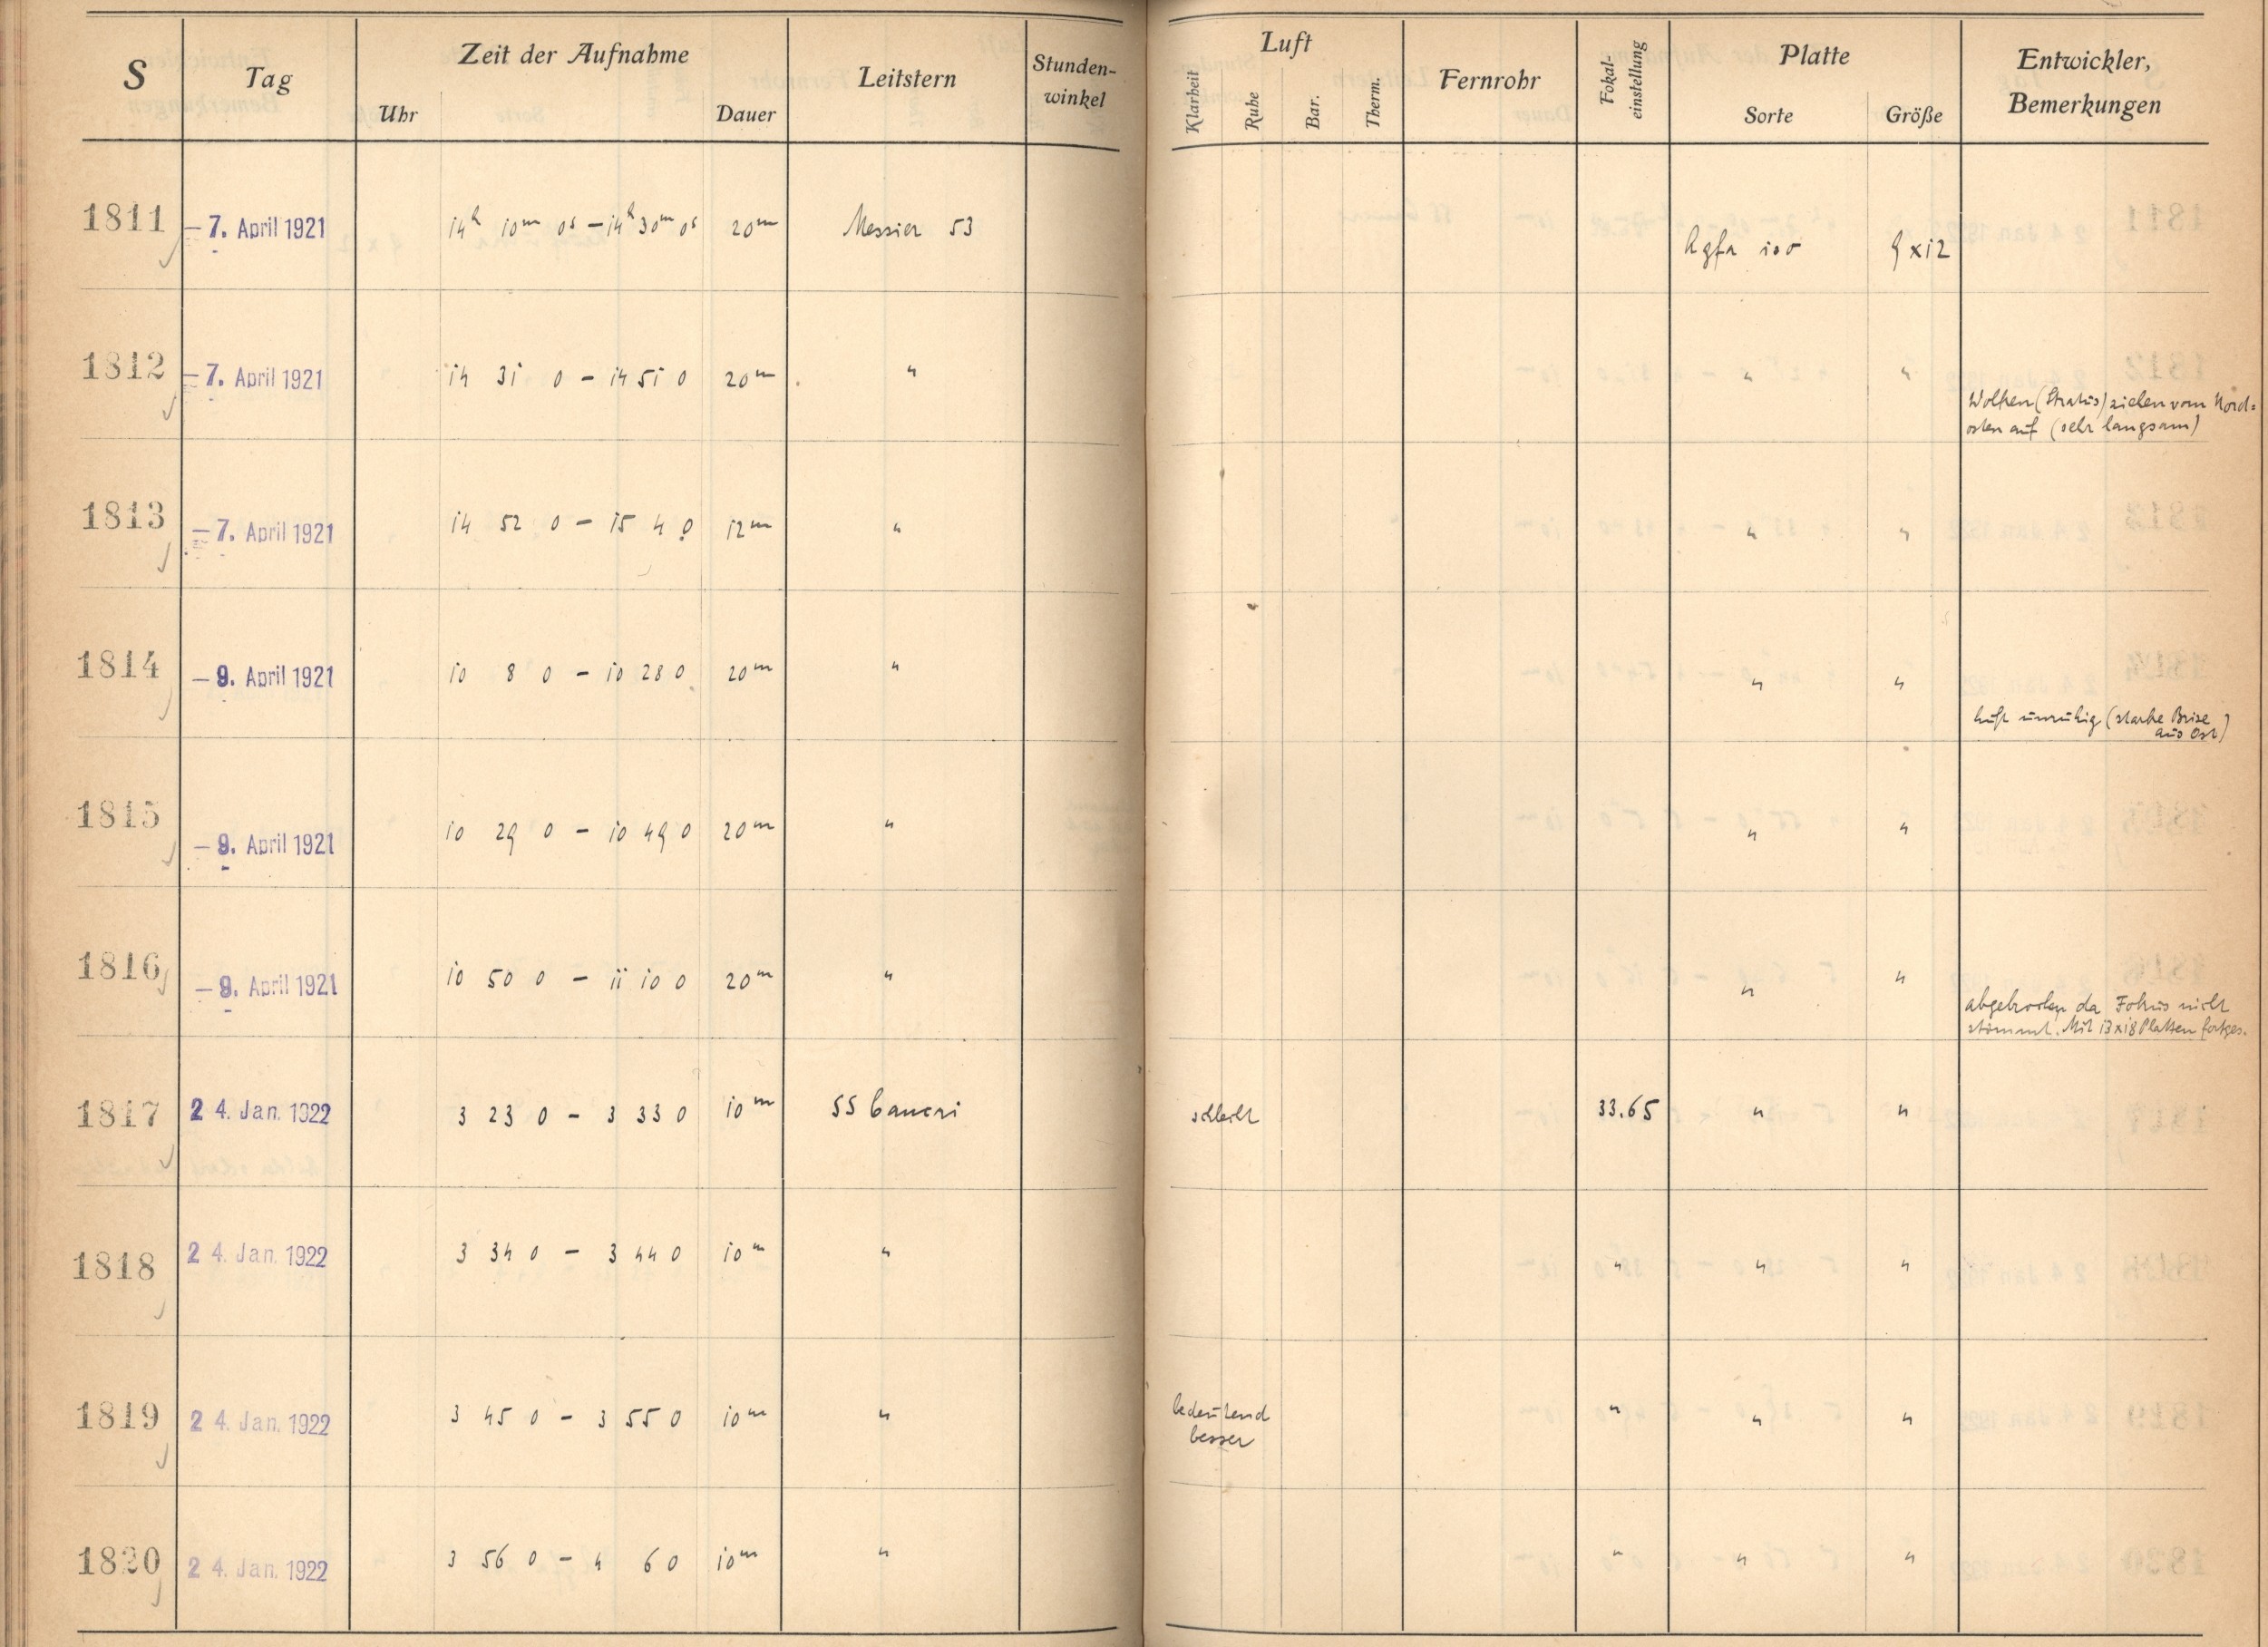 S Tag Zeit der Aufnahme Leitstern Stunden-winkel Luft Fernrohr Fokal-einstellung Platte Entwickler, Bemerkungen
Uhr Dauer Klarheit Ruhe Bar. Therm. Sorte Größe
1811 –7. April 1921 14h 10m 0s – 14h 30m 0s 20m Messier 53 Agfa iso 9x12
1812 –7. April 1921 14 31 0 – 14 51 0 20m " " " Wolken (Stratus) ziehen vom Nord=
osten auf (sehr langsam)
1813 –7. April 1921 14 52 0 – 15 4 0 12m " " "
1814 –9. April 1921 10 8 0 – 10 28 0 20m " " " Luft unruhig (starke Brise
aus Ost)
1815 –9. April 1921 10 29 0 – 10 49 0 20m " " "
1816 –9. April 1921 10 50 0 – 11 10 0 20m " " " abgebrochen da Fokus nicht
stimmt. Mit 13x18 Platten fortges.
1817 24. Jan. 1922 3 23 0 – 3 33 0 10m 55 Cancri schlecht 33.65 " "
1818 24. Jan. 1922 3 34 0 – 3 44 0 10m " " " "
1819 24. Jan. 1922 3 45 0 – 3 55 0 10m " bedeutend
besser " " "
1820 24. Jan. 1922 3 56 0 – 4 6 0 10m " " " "